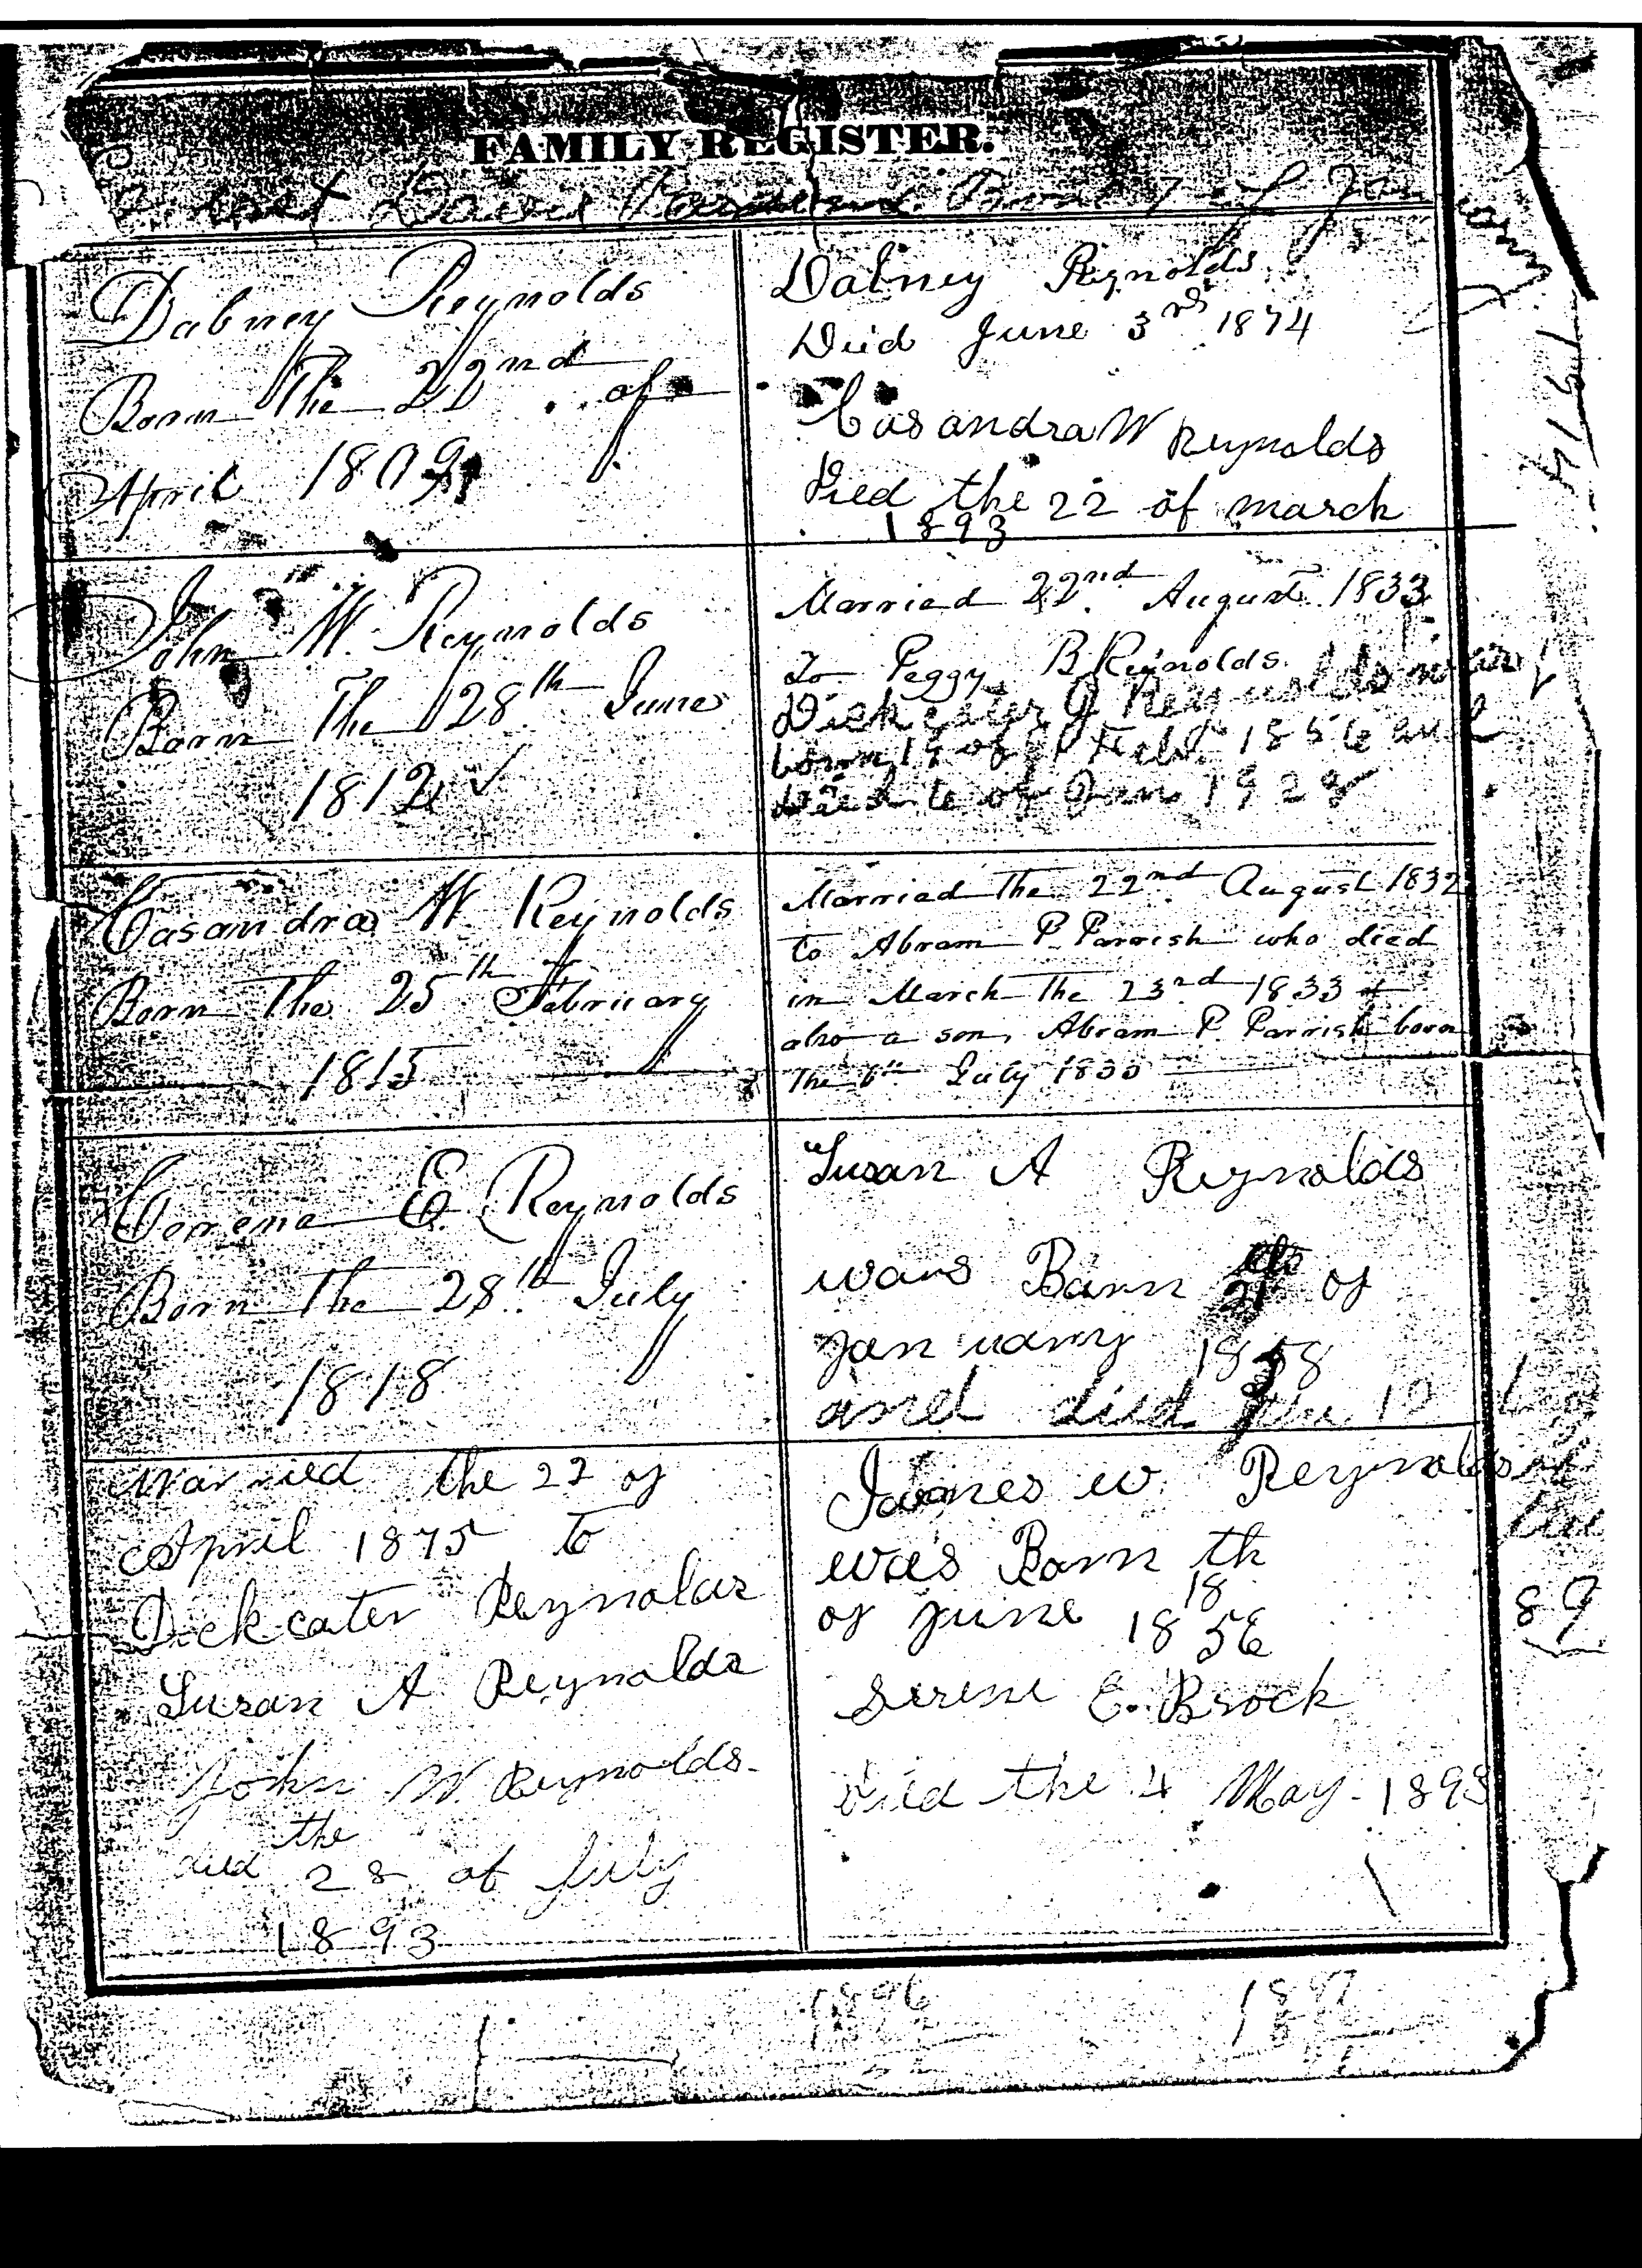 FAMILY REGISTER.
Davis Born 7 of Jan
Dabney Reynolds
Born The 22nd of
April 1809
Dabney Reynolds
Died June 3rd 1874
Casandra W Reynolds
Died the 22 of march
1893
John W. Reynolds
Born The 28th June
1812
Married 22nd August 1833
To Peggy B Reynolds
Dickcater J Reynolds was
born 19 of Feb. 1856 and
Died 6 of Jan 1928
Casandra W Reynolds
Born The 25th February
1815
Married The 22nd August 1832
To Abram P. Parrish who died
in March The 23rd 1833 +
also a son, Abram P. Parrish born
The 6th July 1833
Correna E. Reynolds
Born The 28th July
1818
Susan A Reynolds
wars Barn 21 of
Jan uamy 1858
and died 12
Married the 22 of
April 1875 to
Dickcater Reynolds
Susan A Reynolds
John W. Reynolds.
the
died 28 of July
1893
James w Reynolds
was Barn th
18
of June 1856
Serene E. Brock
Died the 4 May - 1898
89
1896
1897